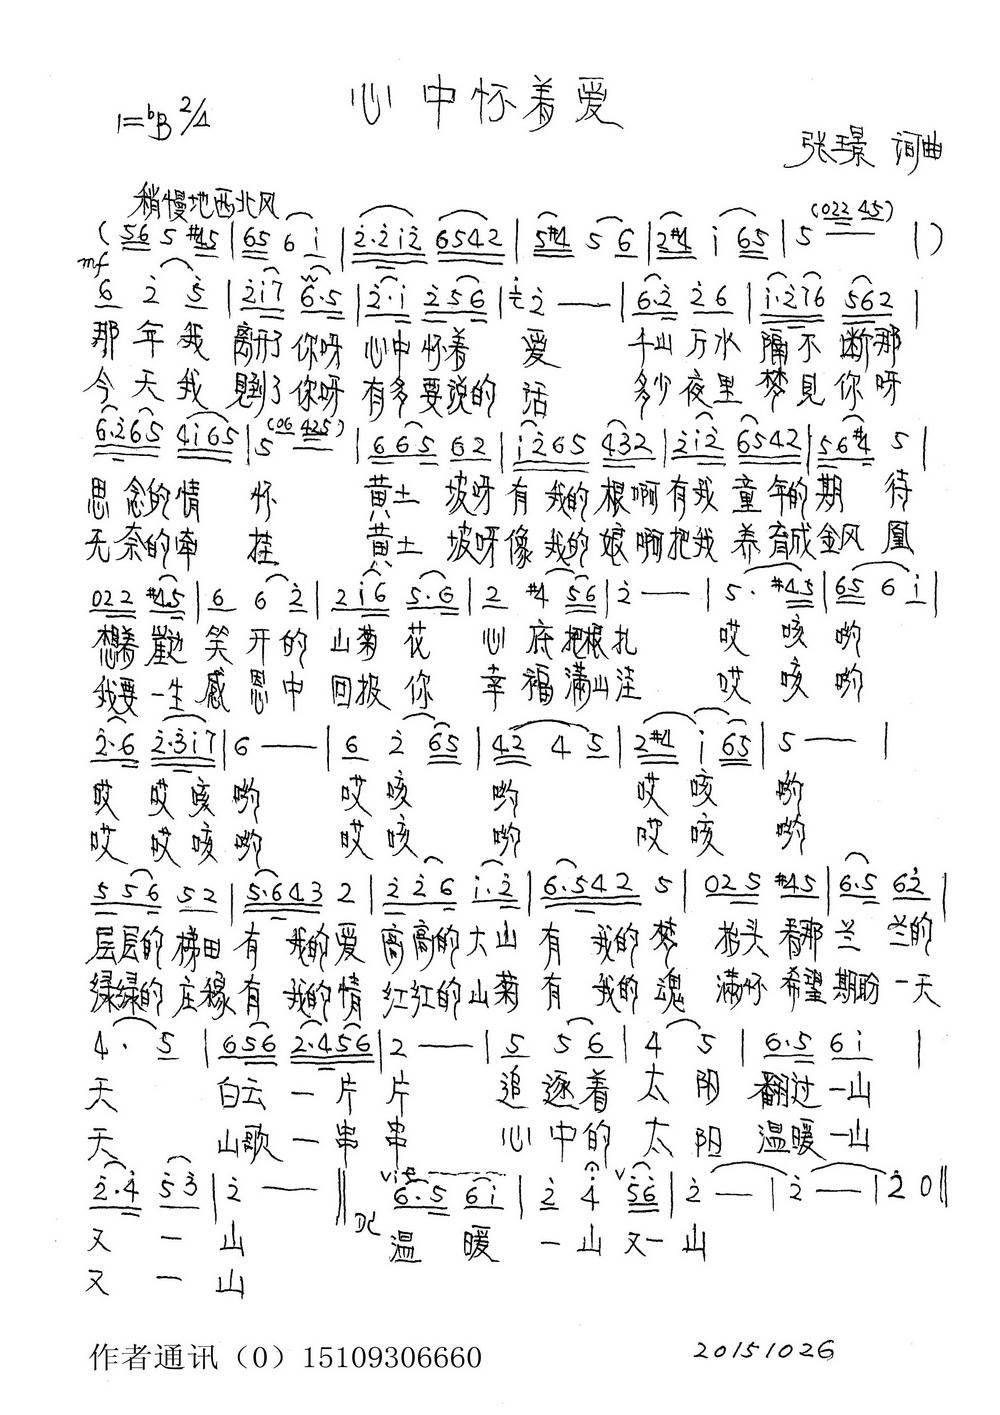 心中怀着爱
1=bB 2/4
张璟 词曲
稍慢地西北风
(022 45)
( 56 5 #45 | 65 6 i | 2·2i2 6542 | 5#4 5 6 | 2#4 i 65 | 5 | )
mf
6 2 5 | 2i7 6·5 | 2·i 256 | 2 — | 6·2 26 | i·276 562 |
那年我 离开了你呀 心中怀着 爱 千山万水 隔不断那
今天我 見到了你呀 有多要说的 话 多少夜里 梦見你呀
(06 425)
6·265 4i65 | 5 | 665 62 | i265 432 | 2i2 6542 | 56#4 5 |
思念的情 怀 黄土坡呀有我的根啊有我童年的期待
无奈的牵 挂 黄土坡呀像我的娘啊把我养育成金凤凰
022 #45 | 6 6 2 | 2i6 5·6 | 2 #4 56 | 2 — | 5· #45 | 65 6 i |
想着歡笑开的山菊花 心底把根扎 哎咳哟
我要一生感恩中回报你 幸福满山洼 哎咳哟
2·6 2·3i7 | 6 — | 6 2 65 | 42 4 5 | 2#4 i 65 | 5 — |
哎哎咳哟 哎咳 哟 哎咳 哟
哎哎咳哟 哎咳 哟 哎咳 哟
556 52 | 5·643 2 | 226 i·2 | 6·542 5 | 025 #45 | 6·5 62 |
层层的梯田有我的爱 高高的大山有我的梦 抬头看那兰兰的
绿绿的庄稼有我的情 红红的山菊有我的魂 满怀希望期盼一天
4· 5 | 656 2·456 | 2 — | 5 5 6 | 4 5 | 6·5 6i |
天 白云一片片 追逐着太阳翻过一山
天 山歌一串串 心中的太阳温暖一山
2·4 53 | 2 — ‖ 6·5 6i | 2 4 56 | 2 — | 2 — | 2 0 ‖
DC
又一山 温暖一山又一山
又一山
作者通讯（0）15109306660
20151026